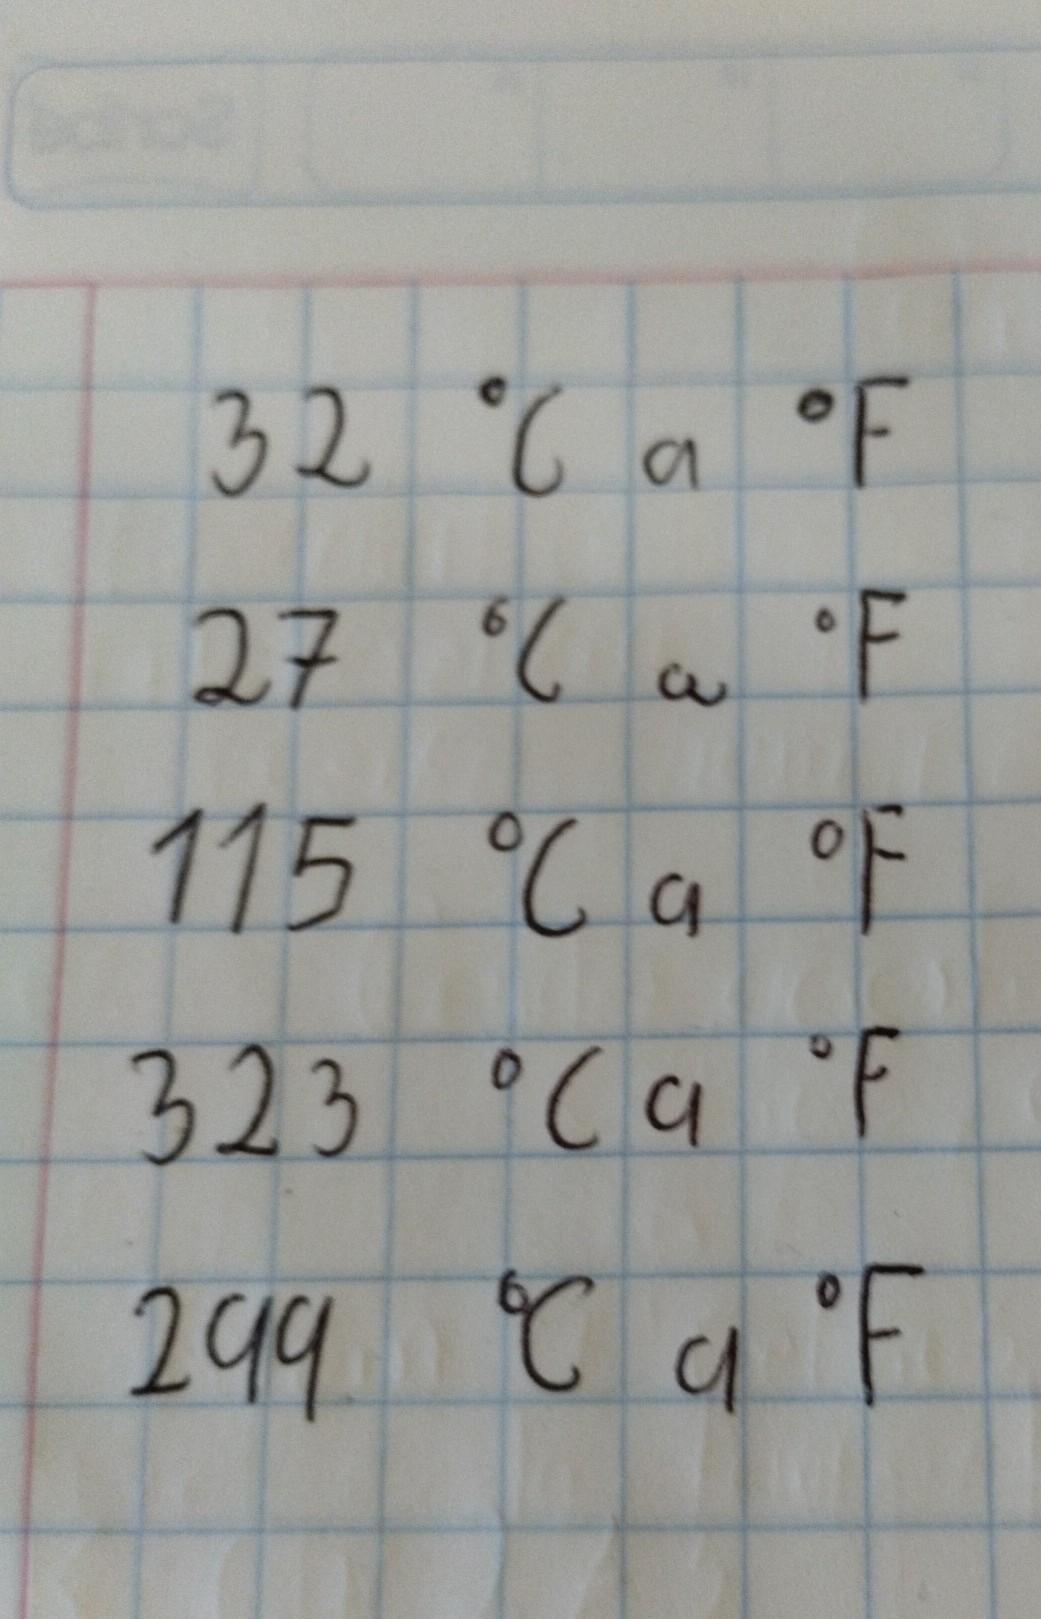 32 °C a °F
27 °C a °F
115 °C a °F
323 °C a °F
299 °C a °F